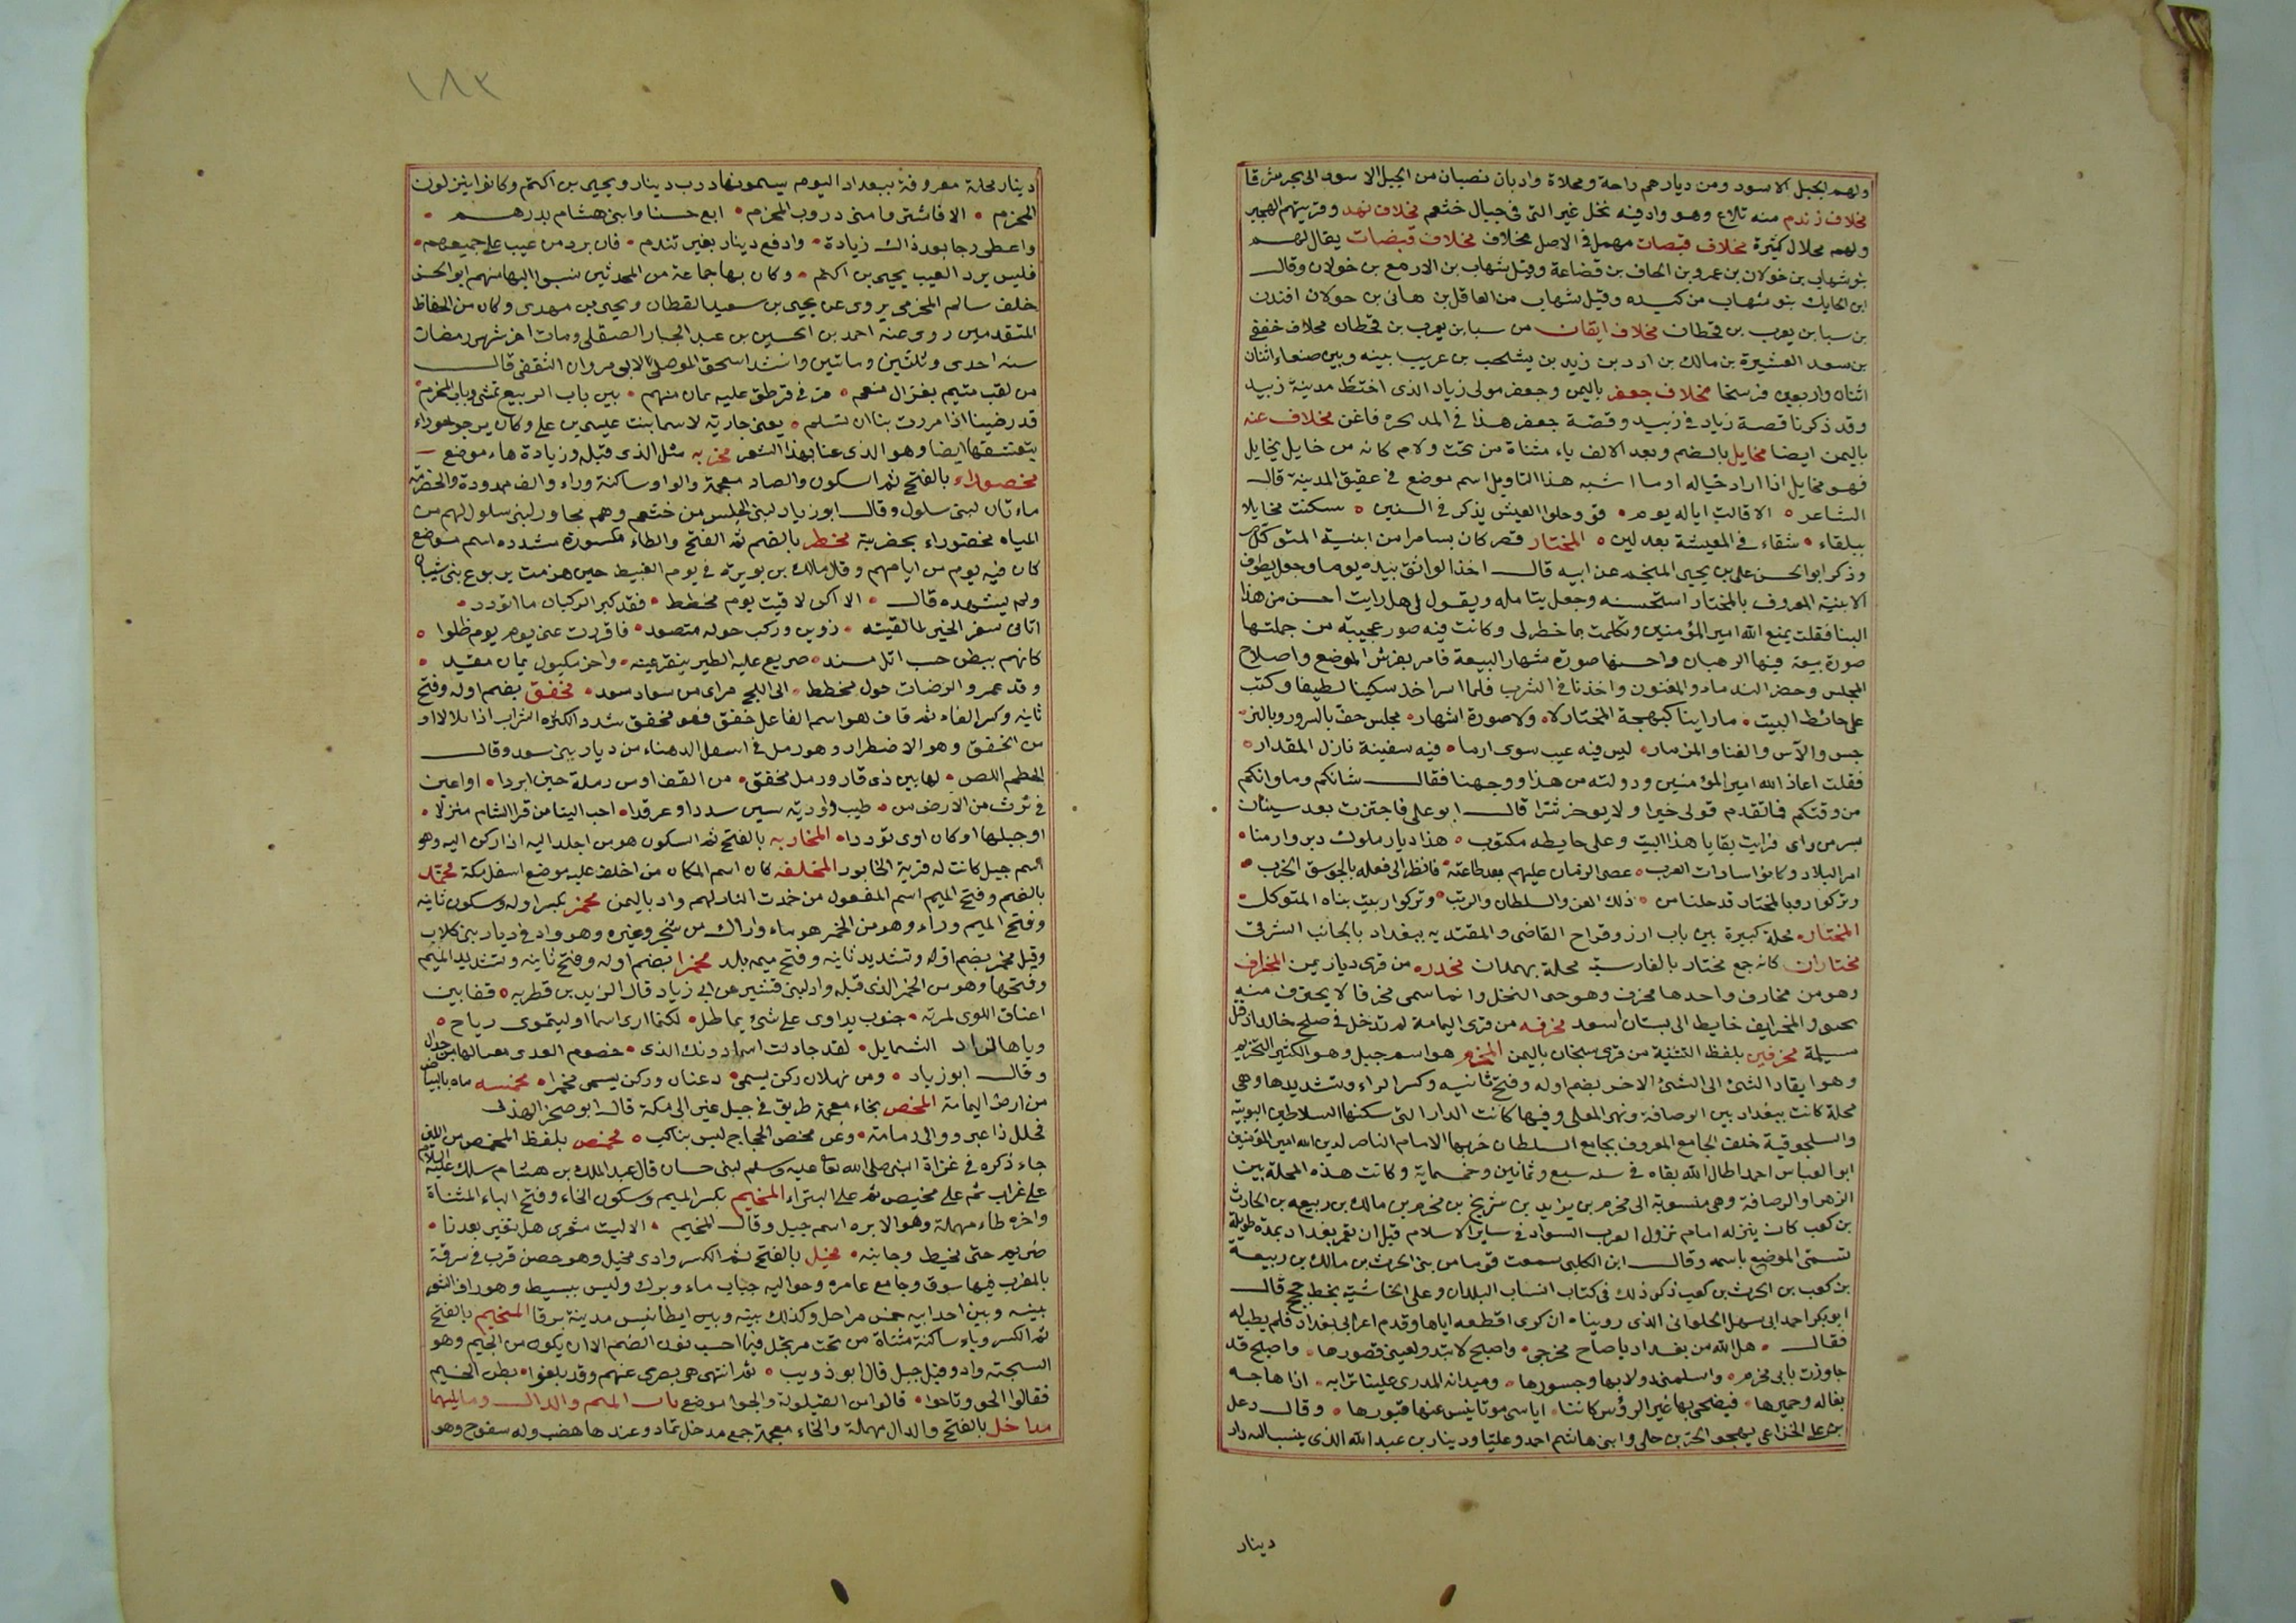 ولهم الجبل الاسود ومن ديارهم راحة ومحلاة واديان نصبان من الجبل الاسود الى بحر شرقا
مخلاف زندم منه تلاع وهو واد فيه نخل غير التى فى جبال خثعم مخلاف نهد وقريتهم الهجير
ولهم محلال كثيرة مخلاف قبصات مهمل فى الاصل مخلاف مخلاف قبضات يقال لهم
بنو شهاب بن خولان بن عمرو بن الحاف بن قضاعة وقيل شهاب بن الازمع بن خولان وقال
ابن الحايك بنو شهاب من كنده وقيل شهاب من العاقل بن هانى بن خولان
بن سبا بن يعرب بن قحطان مخلاف ايقان من سبا بن يعرب بن قحطان مخلاف خفقى
بن سعد العشيرة بن مالك بن ادد بن زيد بن يشجب بن عريب بينه وبين صنعاء اثنان
اثنان واربعين فرسخا مخلاف جعفر باليمن وجعفر مولى زياد الذى اختط مدينة زبيد
وقد ذكرنا قصة زياد فى زبيد وقصة جعفر هذا فى المذيخره فاغن مخلاف عنه
باليمن ايضا مخايل بالضم وبعد الالف ياء مثناة من تحت ولام كانه من خايل يخايل
فهو مخايل اذا اراد خياله او ما اشبه هذا التاويل اسم موضع فى عقيق المدينة قال
الشاعر الا قالت اياله يوم قو وحلوا العيش يذكر فى السنين سكنت مخايلا
ببلقاء شقاء فى المعيشة بعد لين المختار قصر كان بسامرا من ابنية المتوكل
وذكر ابو الحسن على بن يحيى المنجم عن ابيه قال اخذ الواثق بيده يوما وجعل يطوف
الابنية المعروف بالمختار استحسنه وجعل يتامله ويقول لى هل رايت احسن من هذا
البنا فقلت يمنع الله امير المؤمنين وتكلمت بما خطر لى وكانت فيه صور عجيبة من جملتها
صورة بيعة فيها الرهبان واحسنها صورة شهار البيعة فامر بفرش الموضع واصلاح
المجلس وحضر الندماء والمغنون واخذنا فى الشرب فلما اسر اخذ سكينا لطيفا وكتب
على حائط البيت ما راينا كبهجة المختار لا ولا صورة اشهار مجلس حف بالسرور وبالنر
جس والآس والغنا والمزمار ليس فيه عيب سوى ان ما فيه سفينة نازل المقدار
فقلت اعاذ الله امير المؤمنين ودولته من هذا ووجهنا فقال شانكم وما وانكم
من وقتكم فما تقدم قولى خيرا ولا يوخر شرا قال ابو على فاجتزت بعد سنيان
بسر من راى فرايت بقايا هذا البيت وعلى حايطه مكتوب هذا ديار ملوك دبروا زمنا
امر البلاد وكانوا سادات العرب عصى الزمان عليهم بعد طاعته فانظر الى فعله بالجوسق الخرب
وتركوا روبا لمختار قد حلنا من ذلك العز والسلطان والرتب وتركوا ربيت بناه المتوكل
المختاره محلة كبيرة بين باب ارز وقراح القاضى والمقتديه ببغداد بالجانب الشرقى
مختاران كانه جمع مختار بالفارسية محلة بهمدان مخدره من قرى ديار يمن المخراف
وهو من مخارف واحدها مخرف وهو جنى النخل وانما سمى مخرفا لا يحترف منه
يجنى والمخرايف خايط الى بستان اسعد مخرفه من قرى اليمامة لم تدخل فى صلح خالد اذ قتل
مسيلمة مخرفين بلفظ التثنية من قرى سنحان باليمن المخزم هو اسم جبل وهو الكثير التخزيم
وهو ايقاد الشئ الى الشئ الاخر بضم اوله وفتح ثانيه وكسر الراء وتشديدها وهى
محلة كانت ببغداد بين الرصافة ونهر المعلى وفيها كانت الدار التى سكنها السلاطين البويية
والسلجوقية خلف الجامع المعروف بجامع السلطان خربها الامام الناصر لدين الله امير المؤمنين
ابو العباس احمد اطال الله بقاه فى سنه سبع وثمانين وخمسماية وكانت هذه المحلة بين
الزهر او الرصافة وهى منسوبة الى مخرم بن يزيد بن شريح بن مخرم بن مالك بن ربيعه بن الحارث
بن كعب كان ينزله امام نزول العرب السواد فى ساير الاسلام قبل ان تعمر بغداد بمدة طويلة
تسمى الموضع باسمه وقال ابن الكلبى سمعت قوما من بنى الحرث بن مالك بن ربيعة
بن كعب بن الحرث بن كعب ذكر ذلك فى كتاب انساب البلدان وعلى الحاشية بخط حجج قال
ابو بكر احمد ابى سهل الحلوانى الذى روينا ان كسرى اقطعه اياها وقدم اعرابى بغداد فلم يطيله
فقال هل الله من بغداد يا صاح مخرجى واصبح لا تبدو لعينى قصورها واصبح قد
جاوزت بابى مخرم واسلمنى دولابها وجسورها وميدانه المدرى علينا ترابه اذا هاجه
بغاله وحميرها فيضحى بها غير الرؤس كاننا اياسى موتا ينبس عنها قبورها وقال دعل
بن على الخزاعى يهجو الحر بن حلى وابنى هاشم احمد وعليا ودينار بن عبد الله الذى ينسب اليه دار
دينار
١٨٢
دينار محلة معروفة ببغداد اليوم يسمونها درب دينار ويحيى بن اكتم وكانوا ينزلون
المخرم الا فاشترو منى دروب المخرم ابع حسنا وابنى هشام بدرهم
واعطى رجا بعد ذاك زيادة وادفع دينار بغير تندم فان يرد من عيب على جميعهم
فليس يرد العيب يحيى بن اكتم وكان بها جماعة من المحدثين نسبوا اليها منهم ابو الحسن
خلف سالم المخرمى يروى عن يحيى بن سعيد القطان ويحيى بن مهدى وكان من الحفاظ
المتقدمين روى عنه احمد بن الحسين بن عبد الجبار الصقلى ومات اخر شهر رمضان
سنه احدى وثلثين وماتين وانشد اسحق الموصلى لابى مروان الثقفى قال
من لقب متيم بغزال منعم مر فى قرطق عليه يمان منهم بين باب الربيع تمشى وباب المخرم
قد رضينا اذا مررت بنا ان تسلم يعنى جارية لاسما بنت عيسى بن على وكان
يتعشقها ايضا وهو الذى عنا بهذا الشعر مخربه مثل الذى قبله وزيادة هاء موضع
مخصوراء بالفتح ثم السكون والصاد معجمة والواو ساكنة وراء والف ممدودة والخضرمة
ماء تان لبنى سلول وقال ابو زياد لبنى الحليس من خثعم وهم مجاور لبنى سلول لهم من
المياه مخضوراء بحفرية مخطر بالضم ثم الفتح والطاء مكسورة مشدده اسم موضع
كان فيه يوم من ايامهم وقال مالك بن نويرة فى يوم الغبيط حين هزمت يربوع بنى شيبان
ولم يشهده قال الا اكن لاقيت يوم مخطط فقد كبر الركبان ما اتودد
اتانى سفر الخير لما لقيته رزين وركب حوله متصعد فاقررت عينى يوم يوم ظلوا
كانهم ببطن حب اثل مسند صريع عليه الطير ينقر عينه واخر مكبول يمان مقيد
وقد عمر والرضات حول مخطط الى اللج مراى من سعاد سعد مخفق بضم اوله وفتح
ثانيه وكسر الفاء ثم قاف هو اسم الفاعل خفق فهو مخفق شدد لكثره السراب اذا تلالا او
من الخفق وهو الاضطراد وهو رمل فى اسفل الدهناء من ديار بنى سعد وقال
الحطيم اللص لها بين ذى قار ورمل مخفق من القف او من رملة حين ابردا اواعيى
فى ثرث من الارض من طيب واوديه سين سددا وعرقدا احب الينا من قرا الشام منزلا
او جبلها اوكان اوى توددا المخاربه بالفتح ثم السكون هو من اجلد اليه اذا ركن اليه وهو
اسم جبل كانت له قرية الخابور المخلفه كان اسم المكان من اخلف عليه موضع اسفل مكة مخمد
بالضم وفتح الميم اسم المفعول من خمدت النار لهم واد باليمن مخمر بكسر اوله وسكون ثانيه
وفتح الميم وراء وهو من الخمر هو ماء واراك من شجر وغيره وهو واد فى ديار بنى كلاب
وقيل مخمر بضم اوله وتشديد ثانيه وفتح ميمه بلد مخمرا بضم اوله وفتح ثانيه وتشديد الميم
وفتحها وهو من الخمر الذى قبله واد لبنى قشير عن ابى زياد قال الزيد بن قطريه قفا بين
اعناق اللوى لمرية جنوب يداوى على شئ يماطل لكنما ارى اسما اوليتموى رياح
وياها لفواد الشمايل لقد جادلت اسما دونك الذى خصوم العدى من جدال
وقال ابو زياد ومن نهلان ركن يسمى دعنان وركن يسمى مخمرا مخمسه ماه بالبياض
من ارض اليمامة المخص بخاء معجمة طريق فى جبل عير الى مكة قال ابو صخر الهذلى
فحلل ذا عير ووالى رمامة وعن مخص الحجاج ليس بناكب مخمص بلفظ المخمص من اللبن
جاء ذكره فى غزاة النبى صلى الله عليه وسلم لبنى حسان قال عبد الملك بن هشام سلك عليه السلام
على غراب ثم على مخيص ثم على البتراء المخيم بكسر الميم وسكون الخاء وفتح الياء المثناة
واخره طاء مهملة وهو الابره اسم جبل وقال المخيم الا ليت شعرى هل تغير بعدنا
ضريم حتى مخيط وجانبه مخيل بالفتح ثم الكسر وادى مخيل وهو حصن قرب فى سرقة
بالمغرب فيها سوق وجامع عامره وحواليه جباب ماء وبرك وليس ببسيط وهو راف التو
بينه وبين اجدابيه خمس مراحل وكذلك بينه وبين ايطابنيس مدينة برقا المخيم بالفتح
ثم الكسر وياء ساكنة مثناة من تحت مرتجل فيما احسب نون الضم الا ان يكون من الخيم وهو
السجته واد وقيل جبل قال ابو ذويب ثم انتهى عنهم وقد بلغوا بطن المخيم
فقالوا الحو وتاحوا قالوا من القيلولة والجوا موضع باب الميم والدال وما يليهما
مداخل بالفتح والدال مهملة والخاء معجمة جمع مدخل ثماد وعندها هضب وله سفوح وهو